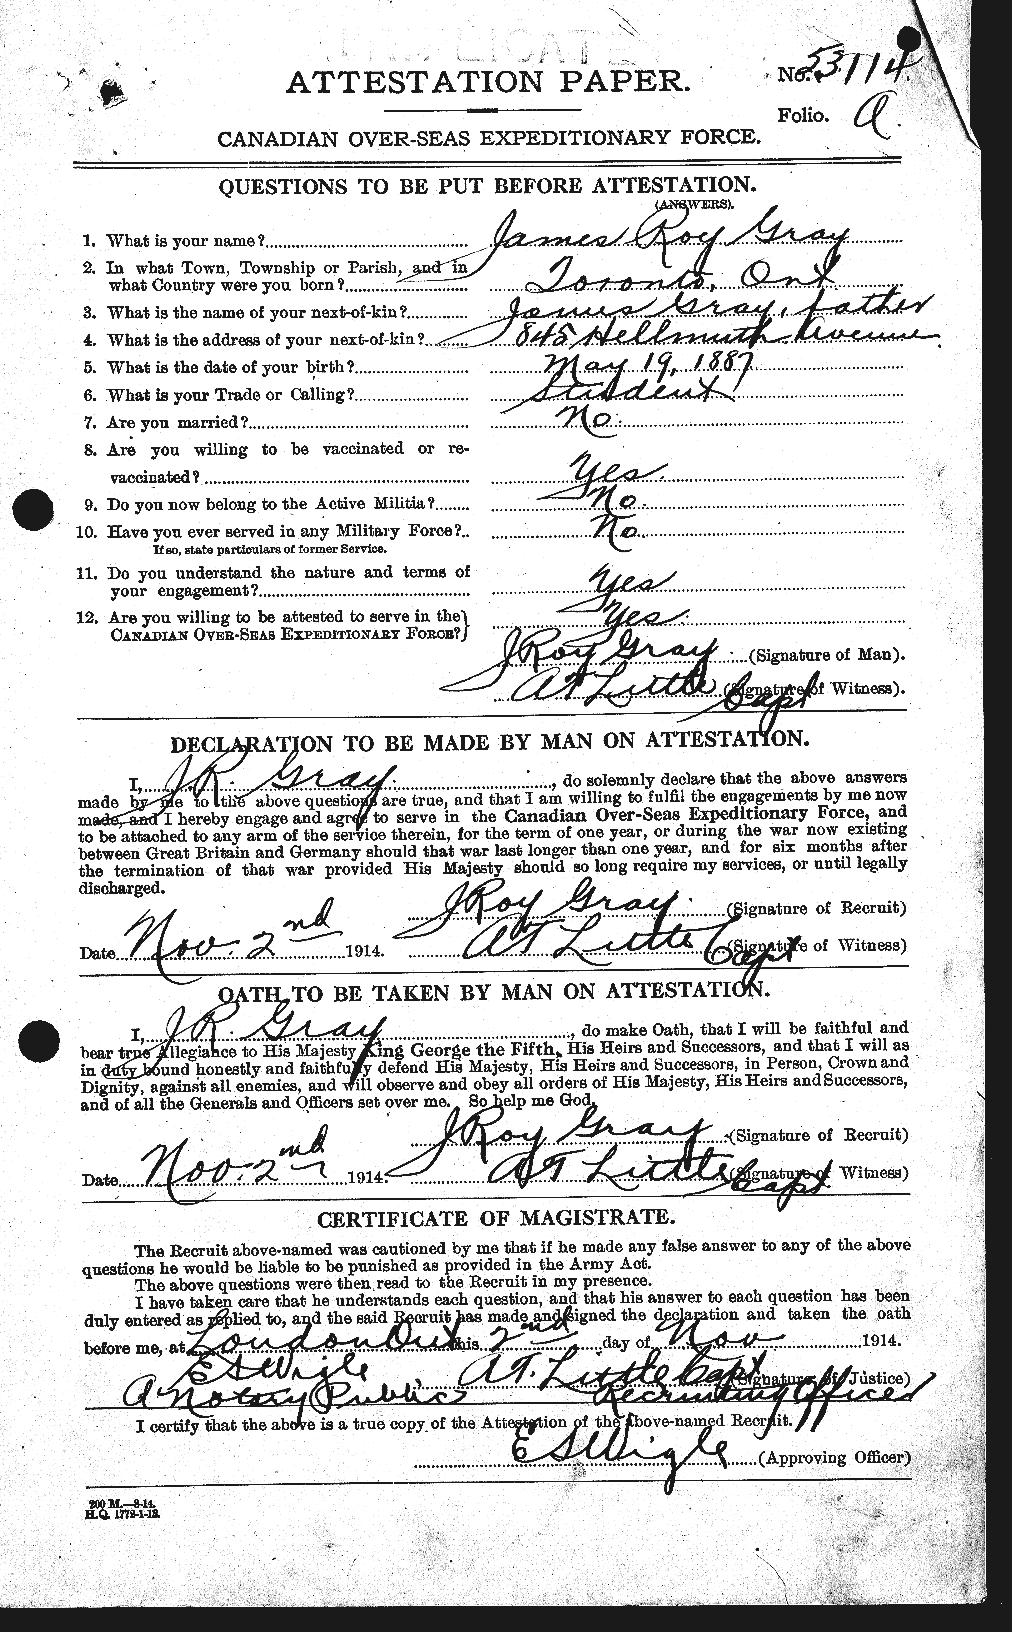 ATTESTATION PAPER.
No. 53114.
Folio. A.
CANADIAN OVER-SEAS EXPEDITIONARY FORCE.
QUESTIONS TO BE PUT BEFORE ATTESTATION.
(ANSWERS).
1. What is your name? James Roy Gray
2. In what Town, Township or Parish, and in
what Country were you born? Toronto, Ont
3. What is the name of your next-of-kin? James Gray, father
4. What is the address of your next-of-kin? 845 Hellmuth Avenue.
5. What is the date of your birth? May 19, 1887
6. What is your Trade or Calling? Student
7. Are you married? No.
8. Are you willing to be vaccinated or re-
vaccinated? Yes.
9. Do you now belong to the Active Militia? No.
10. Have you ever served in any Military Force? No.
If so, state particulars of former Service.
11. Do you understand the nature and terms of
your engagement? Yes
12. Are you willing to be attested to serve in the
CANADIAN OVER-SEAS EXPEDITIONARY FORCE? Yes.
J Roy Gray (Signature of Man).
A T Little Capt (Signature of Witness).
DECLARATION TO BE MADE BY MAN ON ATTESTATION.
I, J. R. Gray, do solemnly declare that the above answers
made by me to the above questions are true, and that I am willing to fulfil the engagements by me now
made, and I hereby engage and agree to serve in the Canadian Over-Seas Expeditionary Force, and
to be attached to any arm of the service therein, for the term of one year, or during the war now existing
between Great Britain and Germany should that war last longer than one year, and for six months after
the termination of that war provided His Majesty should so long require my services, or until legally
discharged.
J Roy Gray. (Signature of Recruit)
Date Nov. 2nd 1914. A T Little Capt (Signature of Witness)
OATH TO BE TAKEN BY MAN ON ATTESTATION.
I, J. R. Gray, do make Oath, that I will be faithful and
bear true Allegiance to His Majesty King George the Fifth, His Heirs and Successors, and that I will as
in duty bound honestly and faithfully defend His Majesty, His Heirs and Successors, in Person, Crown and
Dignity, against all enemies, and will observe and obey all orders of His Majesty, His Heirs and Successors,
and of all the Generals and Officers set over me. So help me God.
J Roy Gray (Signature of Recruit)
Date Nov. 2nd 1914. A T Little Capt (Signature of Witness)
CERTIFICATE OF MAGISTRATE.
The Recruit above-named was cautioned by me that if he made any false answer to any of the above
questions he would be liable to be punished as provided in the Army Act.
The above questions were then read to the Recruit in my presence.
I have taken care that he understands each question, and that his answer to each question has been
duly entered as replied to, and the said Recruit has made and signed the declaration and taken the oath
before me, at London Ont this 2nd day of Nov 1914.
E S Wigle A T. Little Capt (Signature of Justice)
A Notary Public Recruiting Officer
I certify that the above is a true copy of the Attestation of the above-named Recruit.
E S Wigle (Approving Officer)
200 M.—8-14.
H.Q. 1772-1-13.